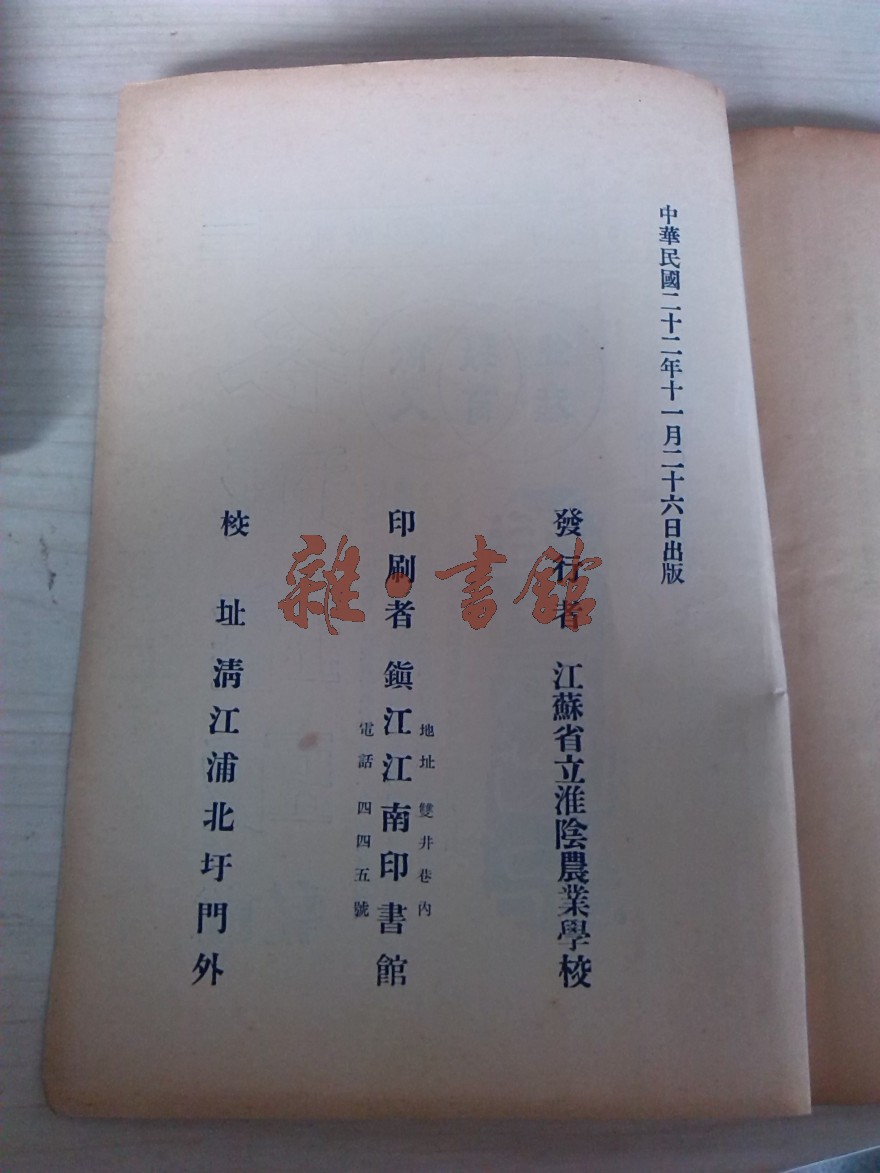 中華民國二十二年十一月二十六日出版
發行者 江蘇省立淮陰農業學校
印刷者 鎭江江南印書館
地址 雙井巷內
電話 四四五號
校址 淸江浦北圩門外
雜·書館